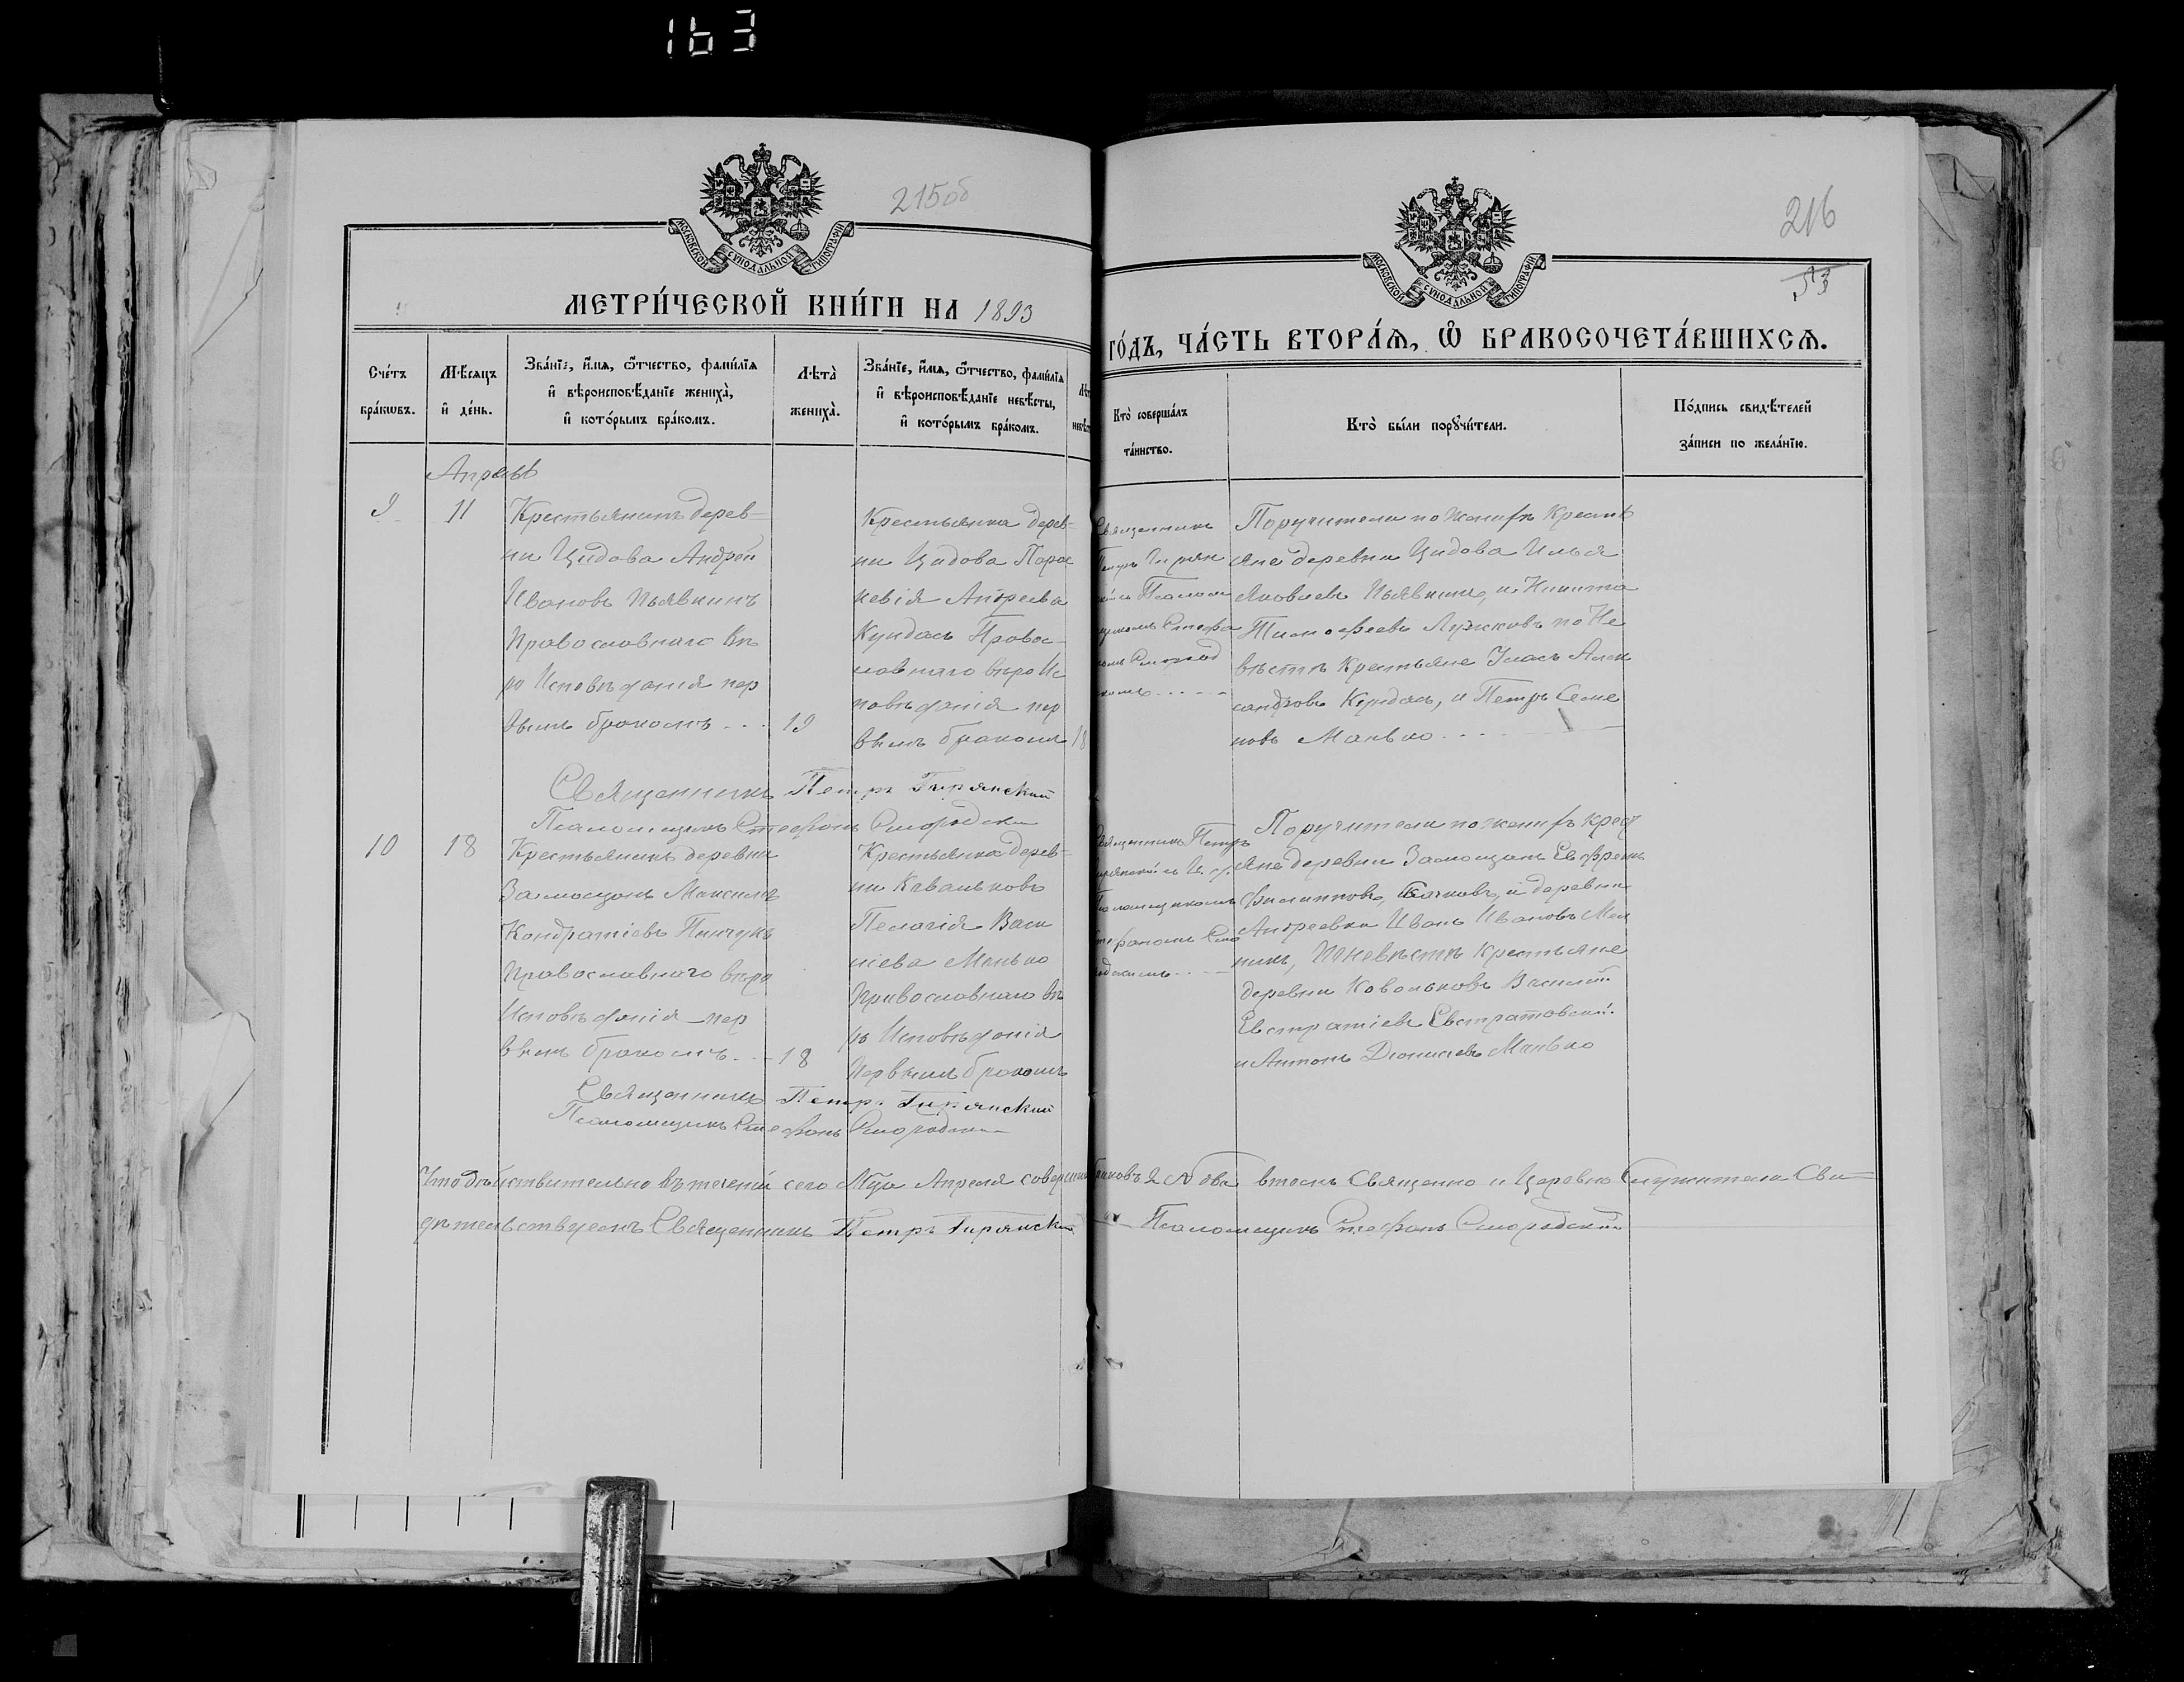 163
215об
216
53
МОСКОВСКОЙ СѴНОДАЛЬНОЙ ТИПОГРАФІИ
МОСКОВСКОЙ СѴНОДАЛЬНОЙ ТИПОГРАФІИ
МЕТРИ́ЧЕСКОЙ КНИ́ГИ НА 1893
ГО́ДЪ, ЧА́СТЬ ВТОРА́Ѧ, Ѡ҆ БРАКОСОЧЕТА́ВШИХСѦ.
Сче́тъ
бра́кωвъ.
Мѣ́сяцъ
и҆ де́нь.
Зва́нїе, и҆́мѧ, ѻ҆́тчество, фами́лїѧ
и҆ вѣроисповѣ́данїе жениха̀,
и҆ кото́рымъ бра́комъ.
Лѣта̀
жениха̀.
Зва́нїе, и҆́мѧ, ѻ҆́тчество, фами́лїѧ
и҆ вѣроисповѣ́данїе невѣ́сты,
и҆ кото́рымъ бра́комъ.
Кто̀ соверша́лъ
та́инство.
Кто̀ бы́ли порꙋчи́тели.
По́дпись свидѣ́телей
за́писи по жела́нїю.
Апрель
9
11
Крестьянинъ дерев-
ни Цидова Андрей
Ивановъ Пьявкинъ
Православнаго вѣ
ро Исповѣданія пер
вымъ бракомъ
19
Крестьянка дерев-
ни Цидова Парас
кевія Андреева
Кундась Правос-
лавнаго вѣро Ис
повѣданія пер
вымъ бракомъ
18
Священникъ
Петръ Гирян
скій съ Псалом
щикомъ Стефа
номъ Смород
скимъ
Поручители по Женихѣ Кресть
яне деревни Цидова Илья
Яковлевъ Пьявкинъ, и Никита
Тимофеевъ Лужковъ по Не
вѣстѣ Крестьяне Власъ Алек
сандровъ Кундась, и Петръ Семе
новъ Манько
Священникъ Петръ Гирянский
Псаломщикъ Стефанъ Смородски
10
18
Крестьянинъ деревни
Замощанъ Максимъ
Кондратіевъ Пинчукъ
Православнаго вѣро
Исповѣданія пер
вымъ бракомъ
18
Крестьянка дерев-
ни Кавальковъ
Пелагія Васи
ліева Манько
Православнаго вѣ
ро Исповѣданія
Первымъ бракомъ
Священникъ Петръ
Гирянскій съ
Псаломщикомъ
Стефаномъ Смо
родскимъ
Поручители по женихѣ крест
яне деревни Замощанъ Евфремъ
Филипповъ, и деревни
Андреевки Иванъ Ивановъ Мел
никъ, По невѣстѣ крестьяне
деревни Ковальковъ Василій
Евстратіевъ Евстратовскій
и Антонъ Дионисіевъ Манько
Священникъ Петръ Гирянский
Псаломщикъ Стефанъ Смородски
Что дѣйствительно въ теченіи сего Мца Апреля совершено браковъ 2 № два втомъ Священно и Церевно Служители Сви-
дѣтельствуемъ Священникъ Петръ Гирянский Псаломщикъ Стефанъ Смородский